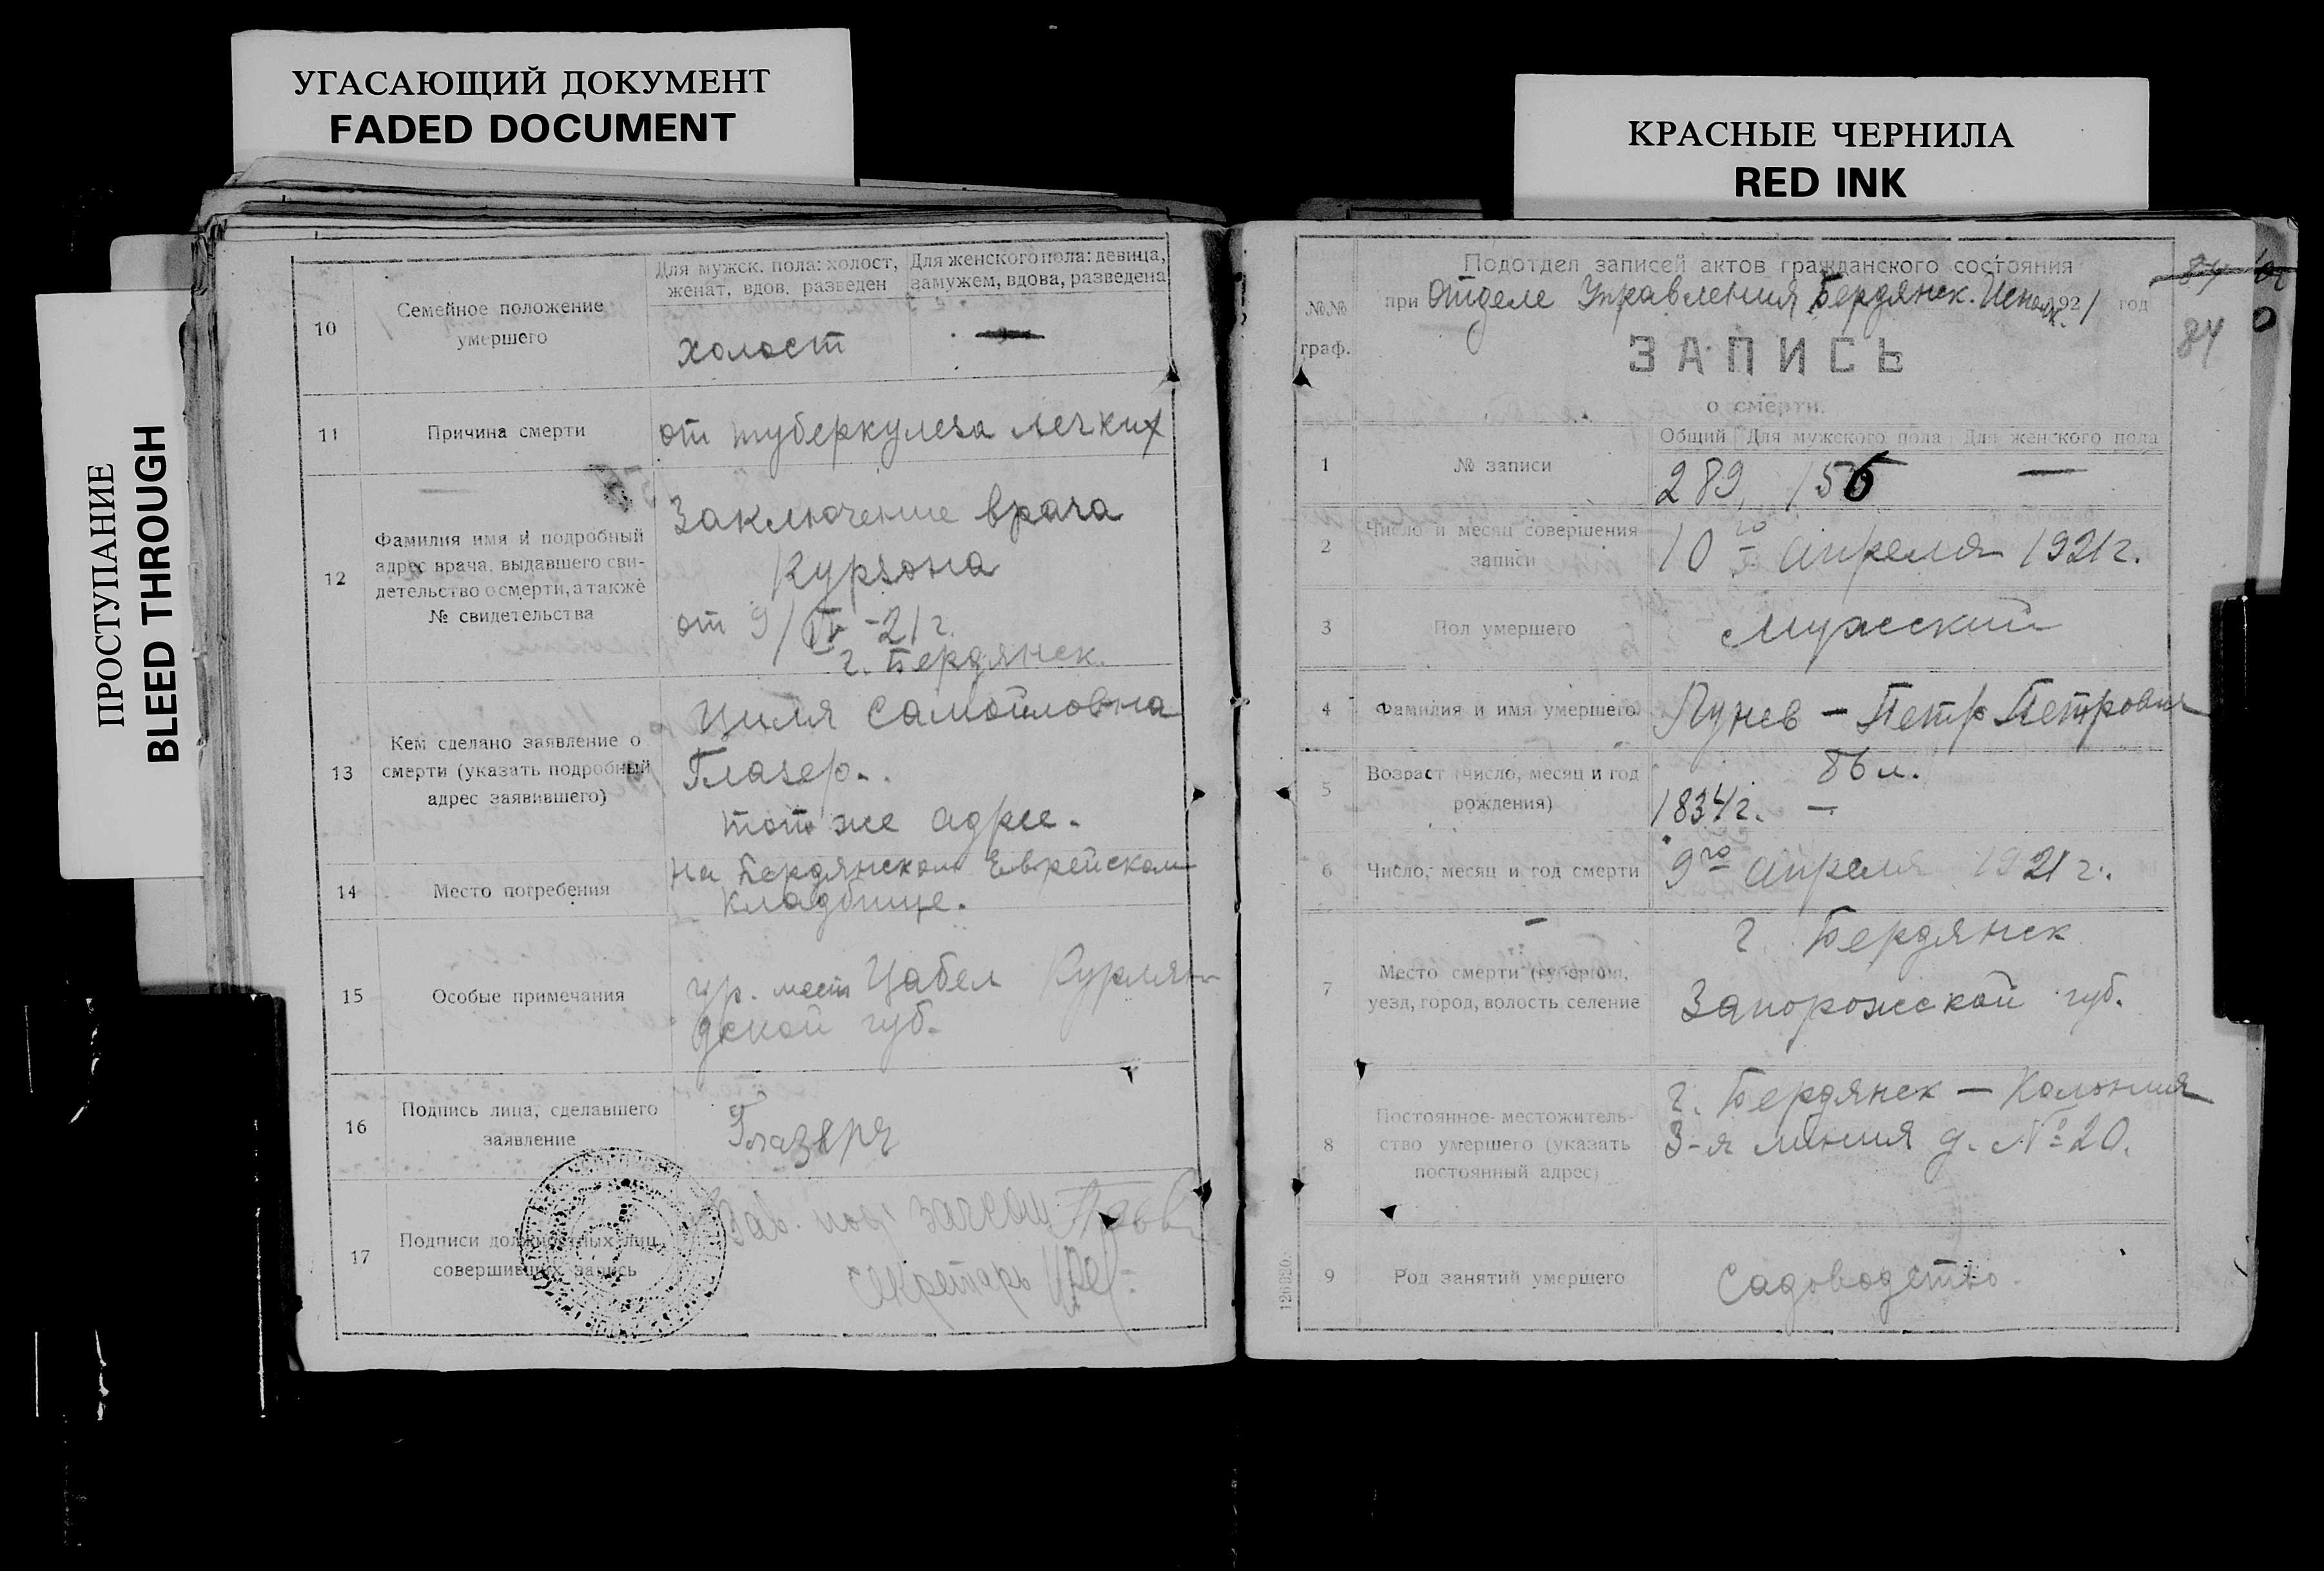 УГАСАЮЩИЙ ДОКУМЕНТ
FADED DOCUMENT
КРАСНЫЕ ЧЕРНИЛА
RED INK
ПРОСТУПАНИЕ
BLEED THROUGH
10
Семейное положение
умершего
Для мужск. пола: холост,
женат, вдов, разведен
Для женского пола: девица,
замужем, вдова, разведена
холост
—
11
Причина смерти
от туберкулеза легких
12
Фамилия имя и подробный
адрес врача, выдавшего сви-
детельство о смерти, а также
№ свидетельства
Заключение врача
Курзона
от 9/IV-21 г.
г. Бердянск.
13
Кем сделано заявление о
смерти (указать подробный
адрес заявившего)
Циля Самойловна
Глазер.
тот же адрес.
14
Место погребения
На Бердянском Еврейском
кладбище.
15
Особые примечания
ур. мест Цабел Курлян-
дской губ.
16
Подпись лица, сделавшего
заявление
17
Подписи должностных лиц,
совершивших запись
Зав. под
секретарь
№№
граф.
Подотдел записей актов гражданского состояния
при Отделе Управления Бердянск. Исполк. 1921 год
84
84
ЗАПИСЬ
о смерти.
1
№ записи
Общий Для мужского пола Для женского пола
289 156 —
2
Число и месяц совершения
записи
10го апреля 1921 г.
3
Пол умершего
Мужской
4
Фамилия и имя умершего
Пунев — Петр Петрович
5
Возраст (число, месяц и год
рождения)
86 л.
1834 г. —
6
Число, месяц и год смерти
9го апреля 1921 г.
7
Место смерти (губерния,
уезд, город, волость селение
г. Бердянск
Запорожской губ.
8
Постоянное местожитель-
ство умершего (указать
постоянный адрес)
г. Бердянск — Колония
3-я линия д. № 20.
9
Род занятий умершего
Садоводство.